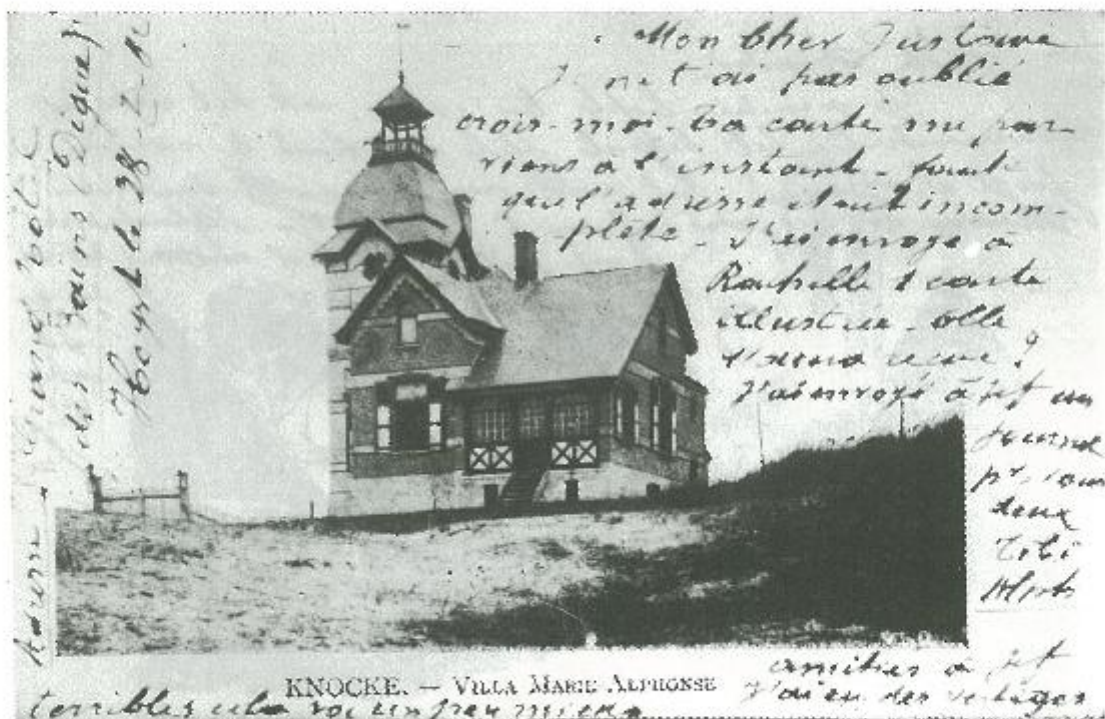 Mon Cher Gustave
Je ne t'ai pas oublié
crois-moi. Ta carte me par-
viens à l'instant - faut
que l'adresse était incom-
plète - J'ai envoyé à
1 carte
illustrée - elle
reçue ?
J'ai envoyé à un
journal
deux
amitiés à
J'ai eu des vertiges
terribles cela va un peu mieux
KNOCKE. — VILLA MARIE ALPHONSE
Grand Hôtel
des Bains (Digue)
Heyst le 28